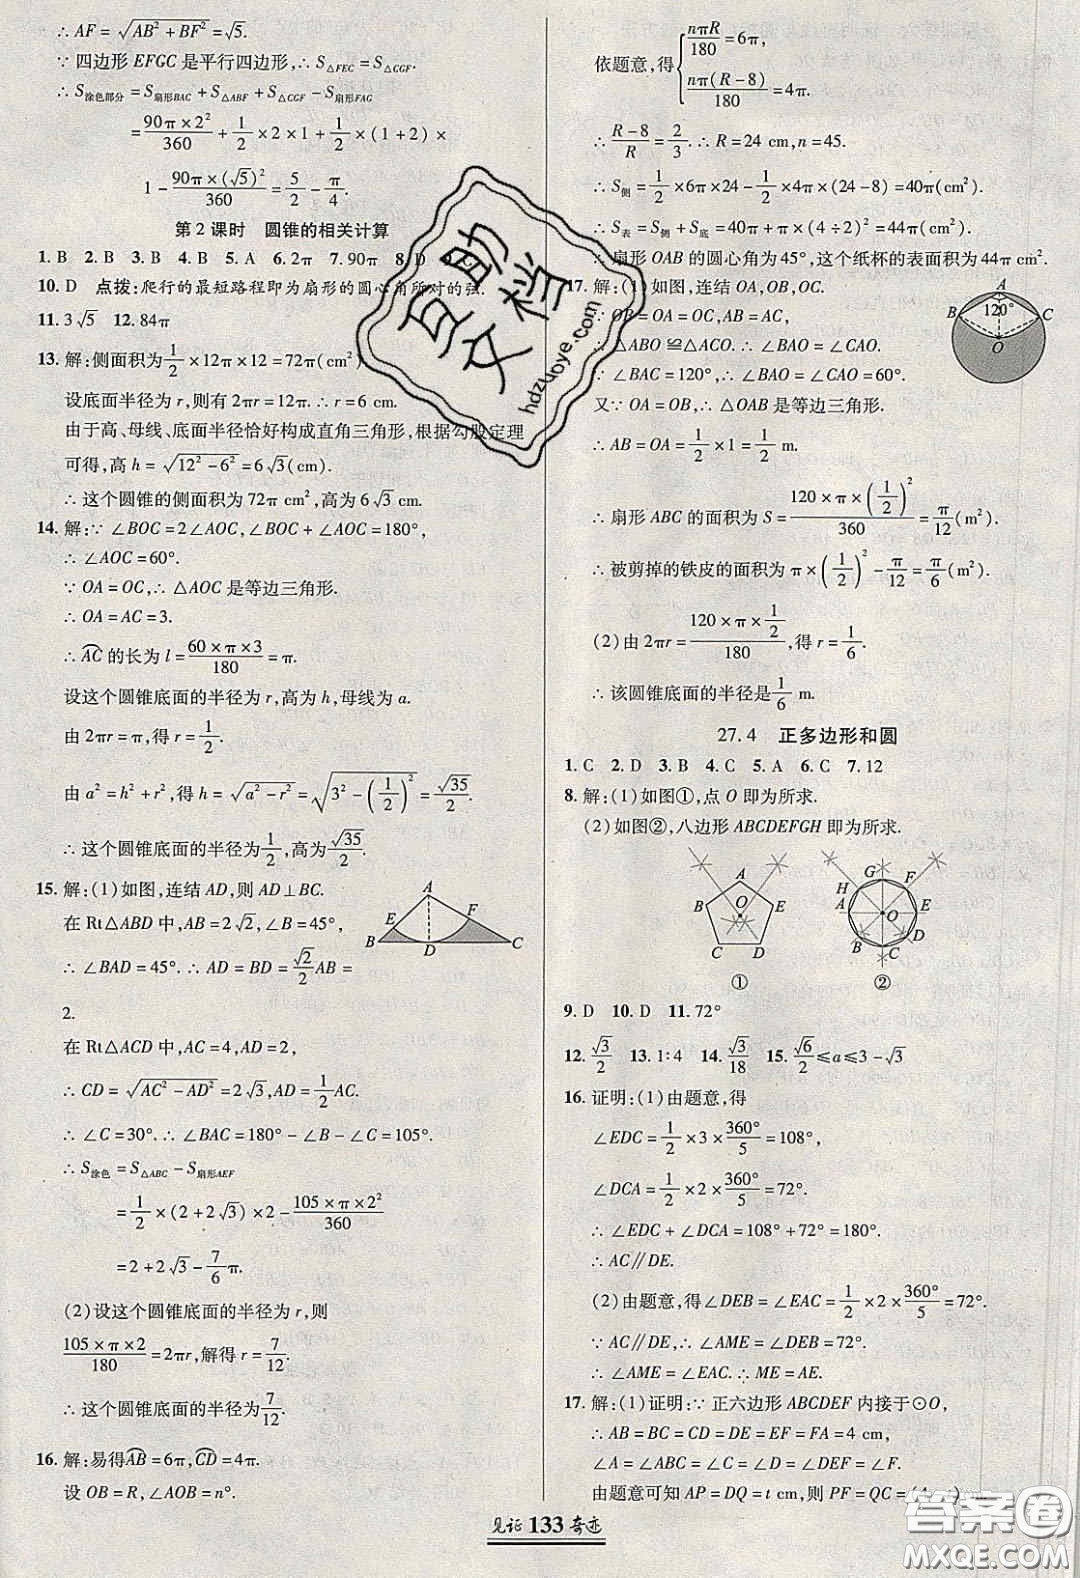 ∴ AF = √(AB² + BF²) = √5.
∵ 四边形 EFGC 是平行四边形, ∴ S△FEC = S△CGF.
∴ S涂色部分 = S扇形BAC + S△ABF + S△CGF − S扇形FAG
= 90π×2²/360 + 1/2 ×2×1 + 1/2 ×(1+2)×
1 − 90π×(√5)²/360 = 5/2 − π/4.
第 2 课时 圆锥的相关计算
1. B 2. B 3. B 4. B 5. A 6. 2π 7. 90π 8. D
10. D 点拨:爬行的最短路程即为扇形的圆心角所对的弦.
11. 3√5 12. 84π
13. 解:侧面积为 1/2 ×12π×12 = 72π(cm²)
设底面半径为 r,则有 2πr = 12π. ∴ r = 6 cm.
由于高、母线、底面半径恰好构成直角三角形,根据勾股定理
可得,高 h = √(12² − 6²) = 6√3 (cm).
∴ 这个圆锥的侧面积为 72π cm²,高为 6√3 cm.
14. 解:∵ ∠BOC = 2∠AOC, ∠BOC + ∠AOC = 180°,
∴ ∠AOC = 60°.
∵ OA = OC, ∴ △AOC 是等边三角形.
∴ OA = AC = 3.
∴ A͡C 的长为 l = 60×π×3/180 = π.
设这个圆锥底面的半径为 r,高为 h,母线为 a.
由 2πr = π,得 r = 1/2.
由 a² = h² + r²,得 h = √(a² − r²) = √(3² − (1/2)²) = √35/2.
∴ 这个圆锥底面的半径为 1/2,高为 √35/2.
15. 解:(1)如图,连结 AD,则 AD⊥BC.
在 Rt△ABD 中,AB = 2√2, ∠B = 45°,
∴ ∠BAD = 45°. ∴ AD = BD = √2/2 AB =
2.
在 Rt△ACD 中,AC = 4,AD = 2,
∴ CD = √(AC² − AD²) = 2√3, AD = 1/2 AC.
∴ ∠C = 30°. ∴ ∠BAC = 180° − ∠B − ∠C = 105°.
∴ S涂色 = S△ABC − S扇形AEF
= 1/2 ×(2 + 2√3)×2 − 105×π×2²/360
= 2 + 2√3 − 7/6 π.
A
E
F
B
D
C
(2)设这个圆锥底面的半径为 r,则
105×π×2/180 = 2πr,解得 r = 7/12.
∴ 这个圆锥底面的半径为 7/12.
16. 解:易得 A͡B = 6π, C͡D = 4π.
设 OB = R, ∠AOB = n°.
依题意,得 { nπR/180 = 6π,
nπ(R−8)/180 = 4π.
∴ (R−8)/R = 2/3. ∴ R = 24 cm, n = 45.
∴ S侧 = 1/2 ×6π×24 − 1/2 ×4π×(24−8) = 40π(cm²).
∴ S表 = S侧 + S底 = 40π + π×(4÷2)² = 44π(cm²).
∴ 扇形 OAB 的圆心角为 45°,这个纸杯的表面积为 44π cm².
17. 解:(1)如图,连结 OA,OB,OC.
∵ OB = OA = OC, AB = AC,
∴ △ABO≌△ACO. ∴ ∠BAO = ∠CAO.
∵ ∠BAC = 120°, ∴ ∠BAO = ∠CAO = 60°.
又∵ OA = OB, ∴ △OAB 是等边三角形.
∴ AB = OA = 1/2 ×1 = 1/2 (m).
A
B
120°
C
O
∴ 扇形 ABC 的面积为 S = 120×π×(1/2)²/360 = π/12 (m²).
∴ 被剪掉的铁皮的面积为 π×(1/2)² − π/12 = π/6 (m²).
(2)由 2πr = 120×π×1/2/180,得 r = 1/6.
∴ 该圆锥底面的半径是 1/6 m.
27.4 正多边形和圆
1. C 2. D 3. B 4. C 5. A 6. C 7. 12
8. 解:(1)如图①,点 O 即为所求.
(2)如图②,八边形 ABCDEFGH 即为所求.
A
B
E
O
C
D
①
G
H
F
A
O
E
B
D
C
②
9. D 10. D 11. 72°
12. √3/2 13. 1:4 14. √3/18 15. √6/2 ≤ a ≤ 3 − √3
16. 证明:(1)由题意,得
∠EDC = 1/2 ×3× 360°/5 = 108°,
∠DCA = 1/2 ×2× 360°/5 = 72°,
∴ ∠EDC + ∠DCA = 108° + 72° = 180°.
∴ AC∥DE.
(2)由题意,得 ∠DEB = ∠EAC = 1/2 ×2× 360°/5 = 72°.
∵ AC∥DE, ∴ ∠AME = ∠DEB = 72°.
∴ ∠AME = ∠EAC. ∴ ME = AE.
17. 解:(1)证明:∵ 正六边形 ABCDEF 内接于⊙O,
∴ AB = BC = CD = DE = EF = FA,
∠A = ∠ABC = ∠C = ∠D = ∠DEF = ∠F.
由题意可知 AP = DQ = t cm,则 PF = QC =
见证 133 奇迹
互助
文档
hdzuoye.com
答案圈
MXQE.COM